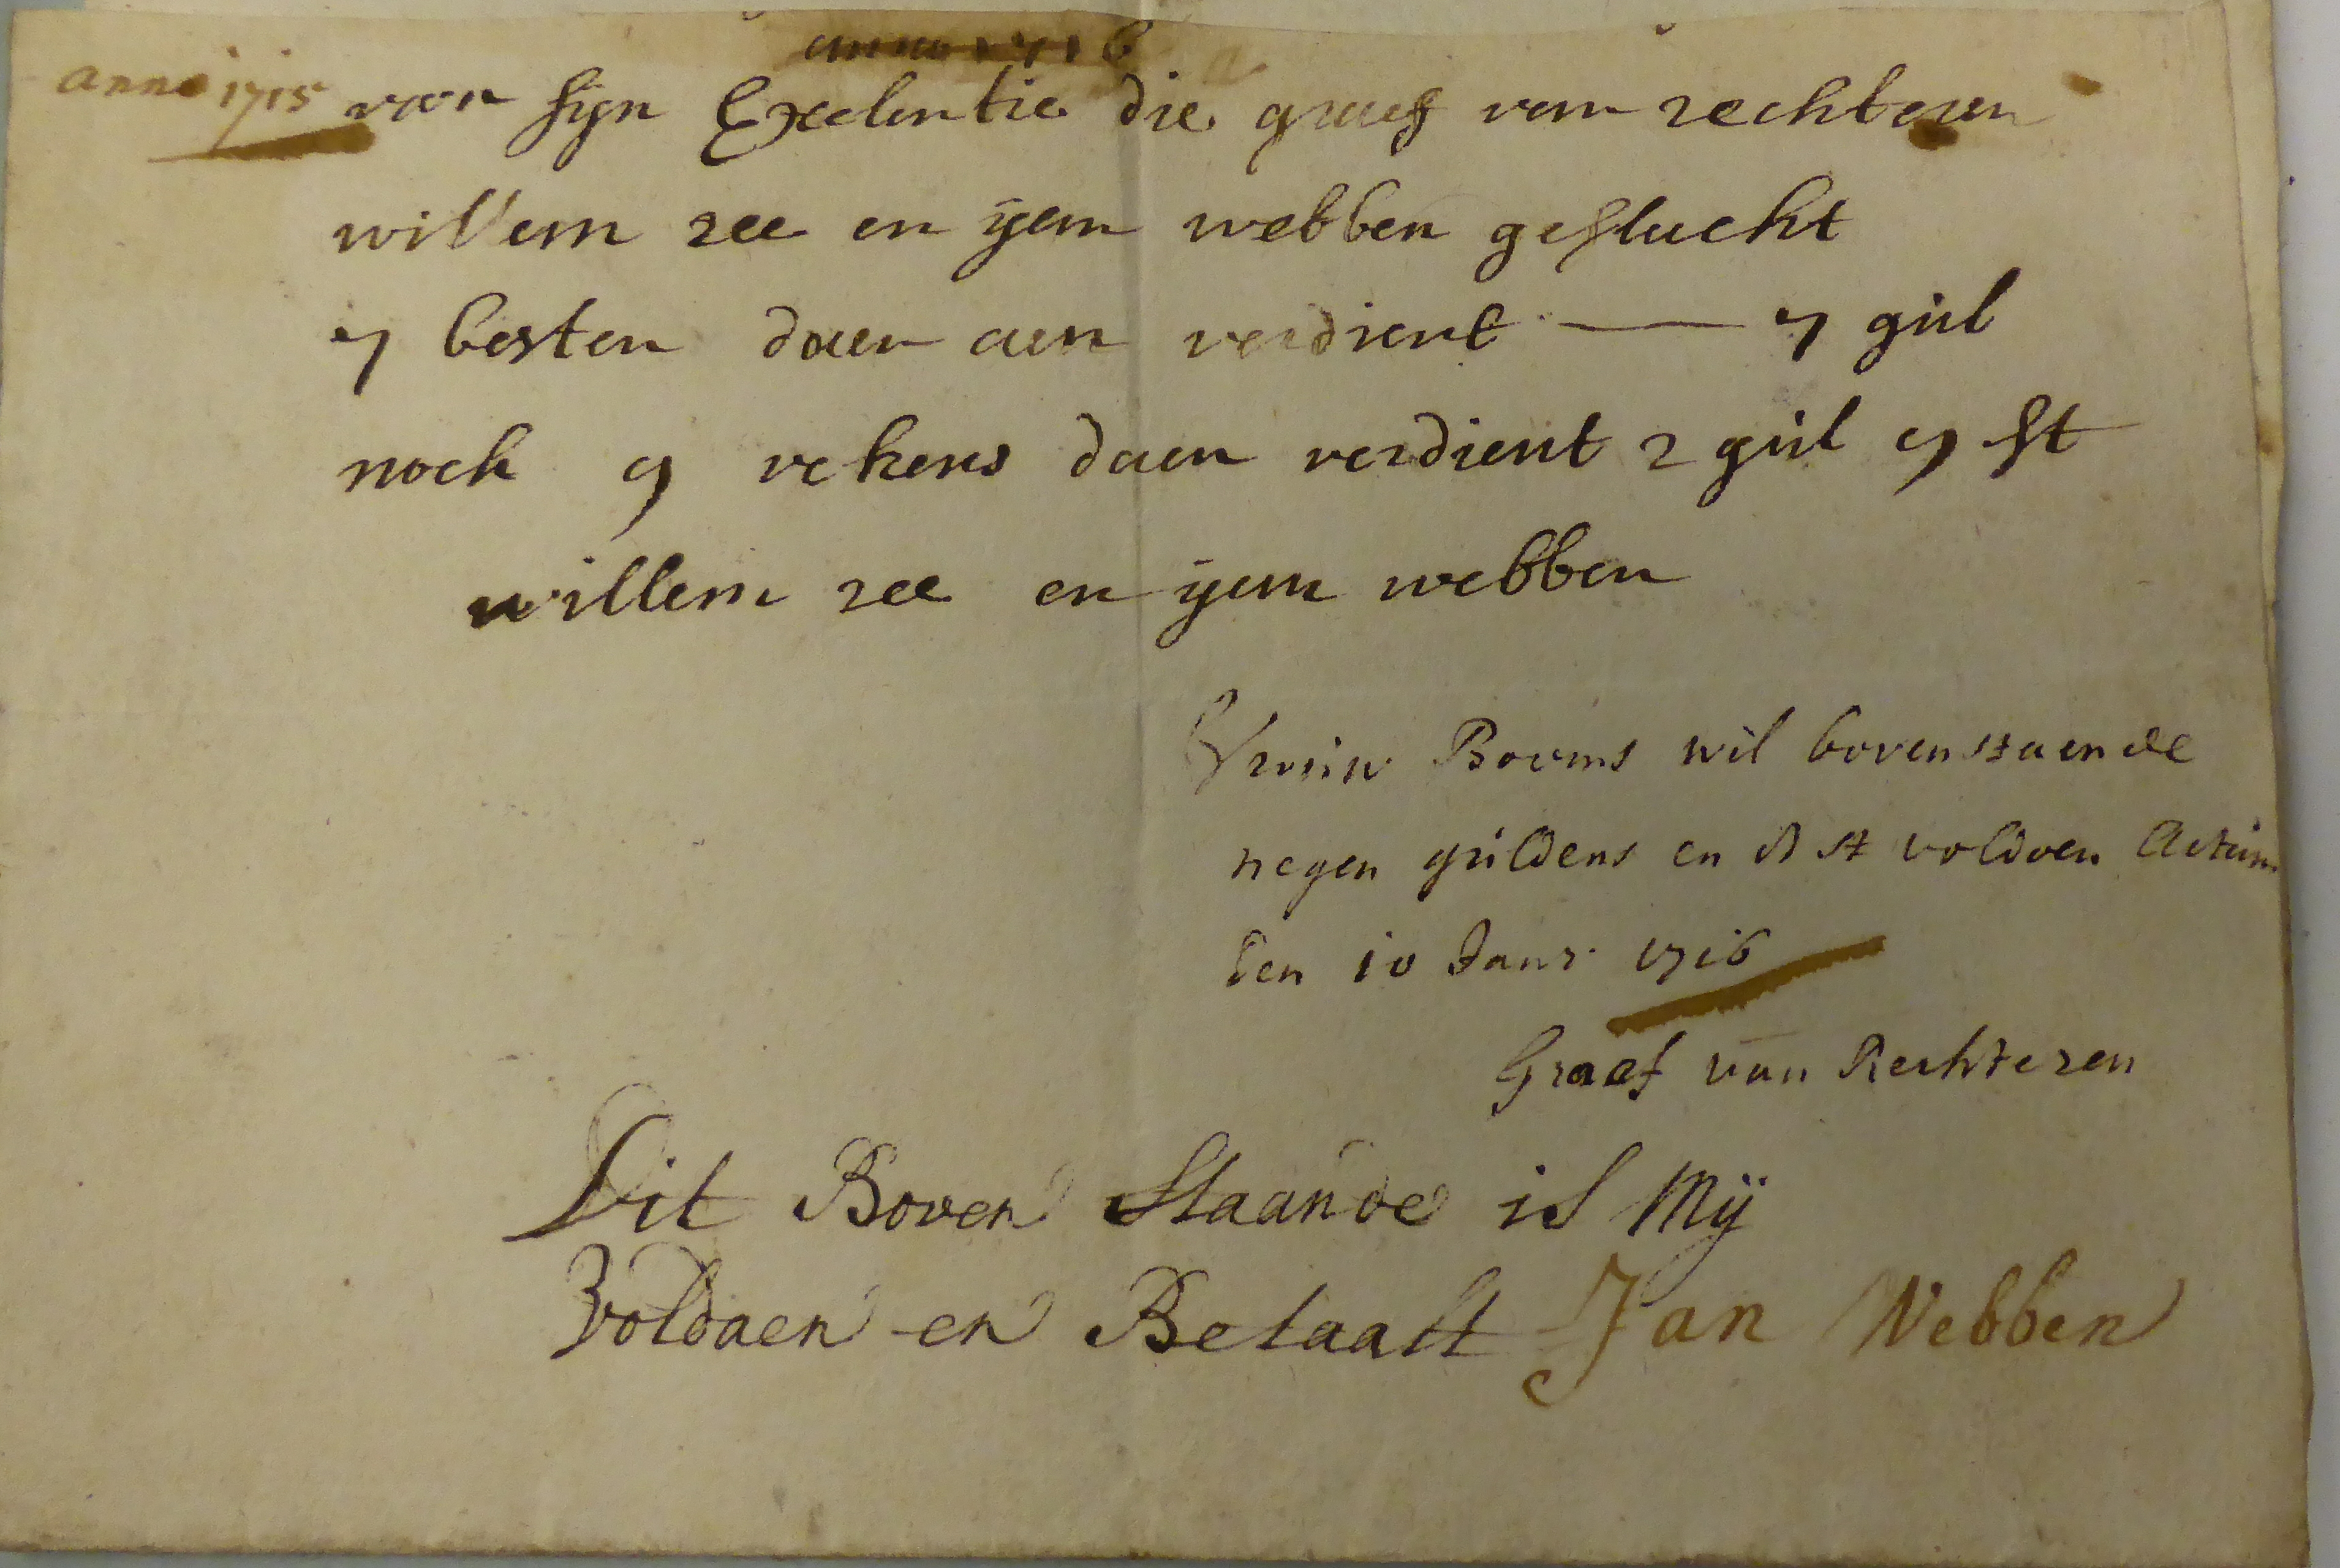 anno 1716
anno 1715 voor sijn Excelentie die graef van rechteren
willem ree en yan webben geslacht
7 besten daer aen verdient — 7 gul
noch 9 vekens daer verdient 2 gul 5 st
willem ree en yan webben
Vrouw Booms wil bovenstaende
negen guldens en 5 st voldoen Actum
den 10 Janr. 1716
Graef van Rechteren
Dit Boven Staande is Mÿ
Voldaen en Betaalt Jan Webben